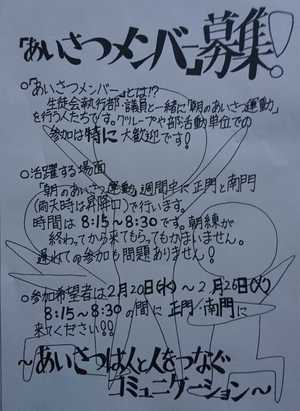 『あいさつメンバー』募集!
○『あいさつメンバー』とは!?
生徒会執行部・議員と一緒に「朝のあいさつ運動」
を行う人たちです。グループや部活動単位での
参加は特に大歓迎です!
○活躍する場面
「朝のあいさつ運動」週間中に正門と南門
(雨天時は昇降口)で行います。
時間は8:15~8:30です。朝練が
終わってから来てもらってもかまいません。
遅れての参加も問題ありません!
○参加希望者は2月20日(水)~2月26日(火)
8:15~8:30の間に正門/南門に
来てください!!
~あいさつは人と人をつなぐ
コミュニケーション~